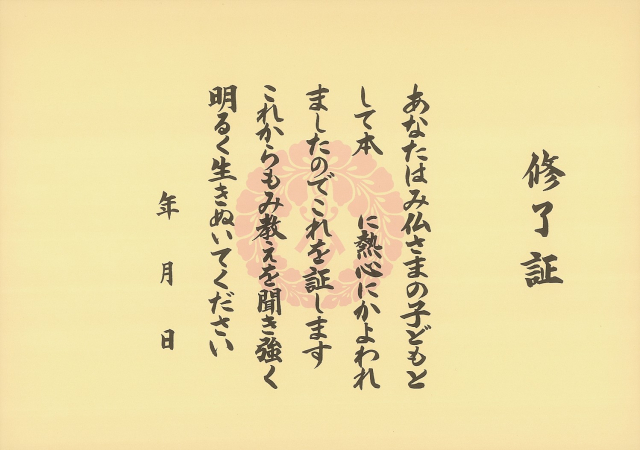 修了証
あなたはみ仏さまの子どもと
して本　　に熱心にかよわれ
ましたのでこれを証します
これからもみ教えを聞き強く
明るく生きぬいてください
年　月　日